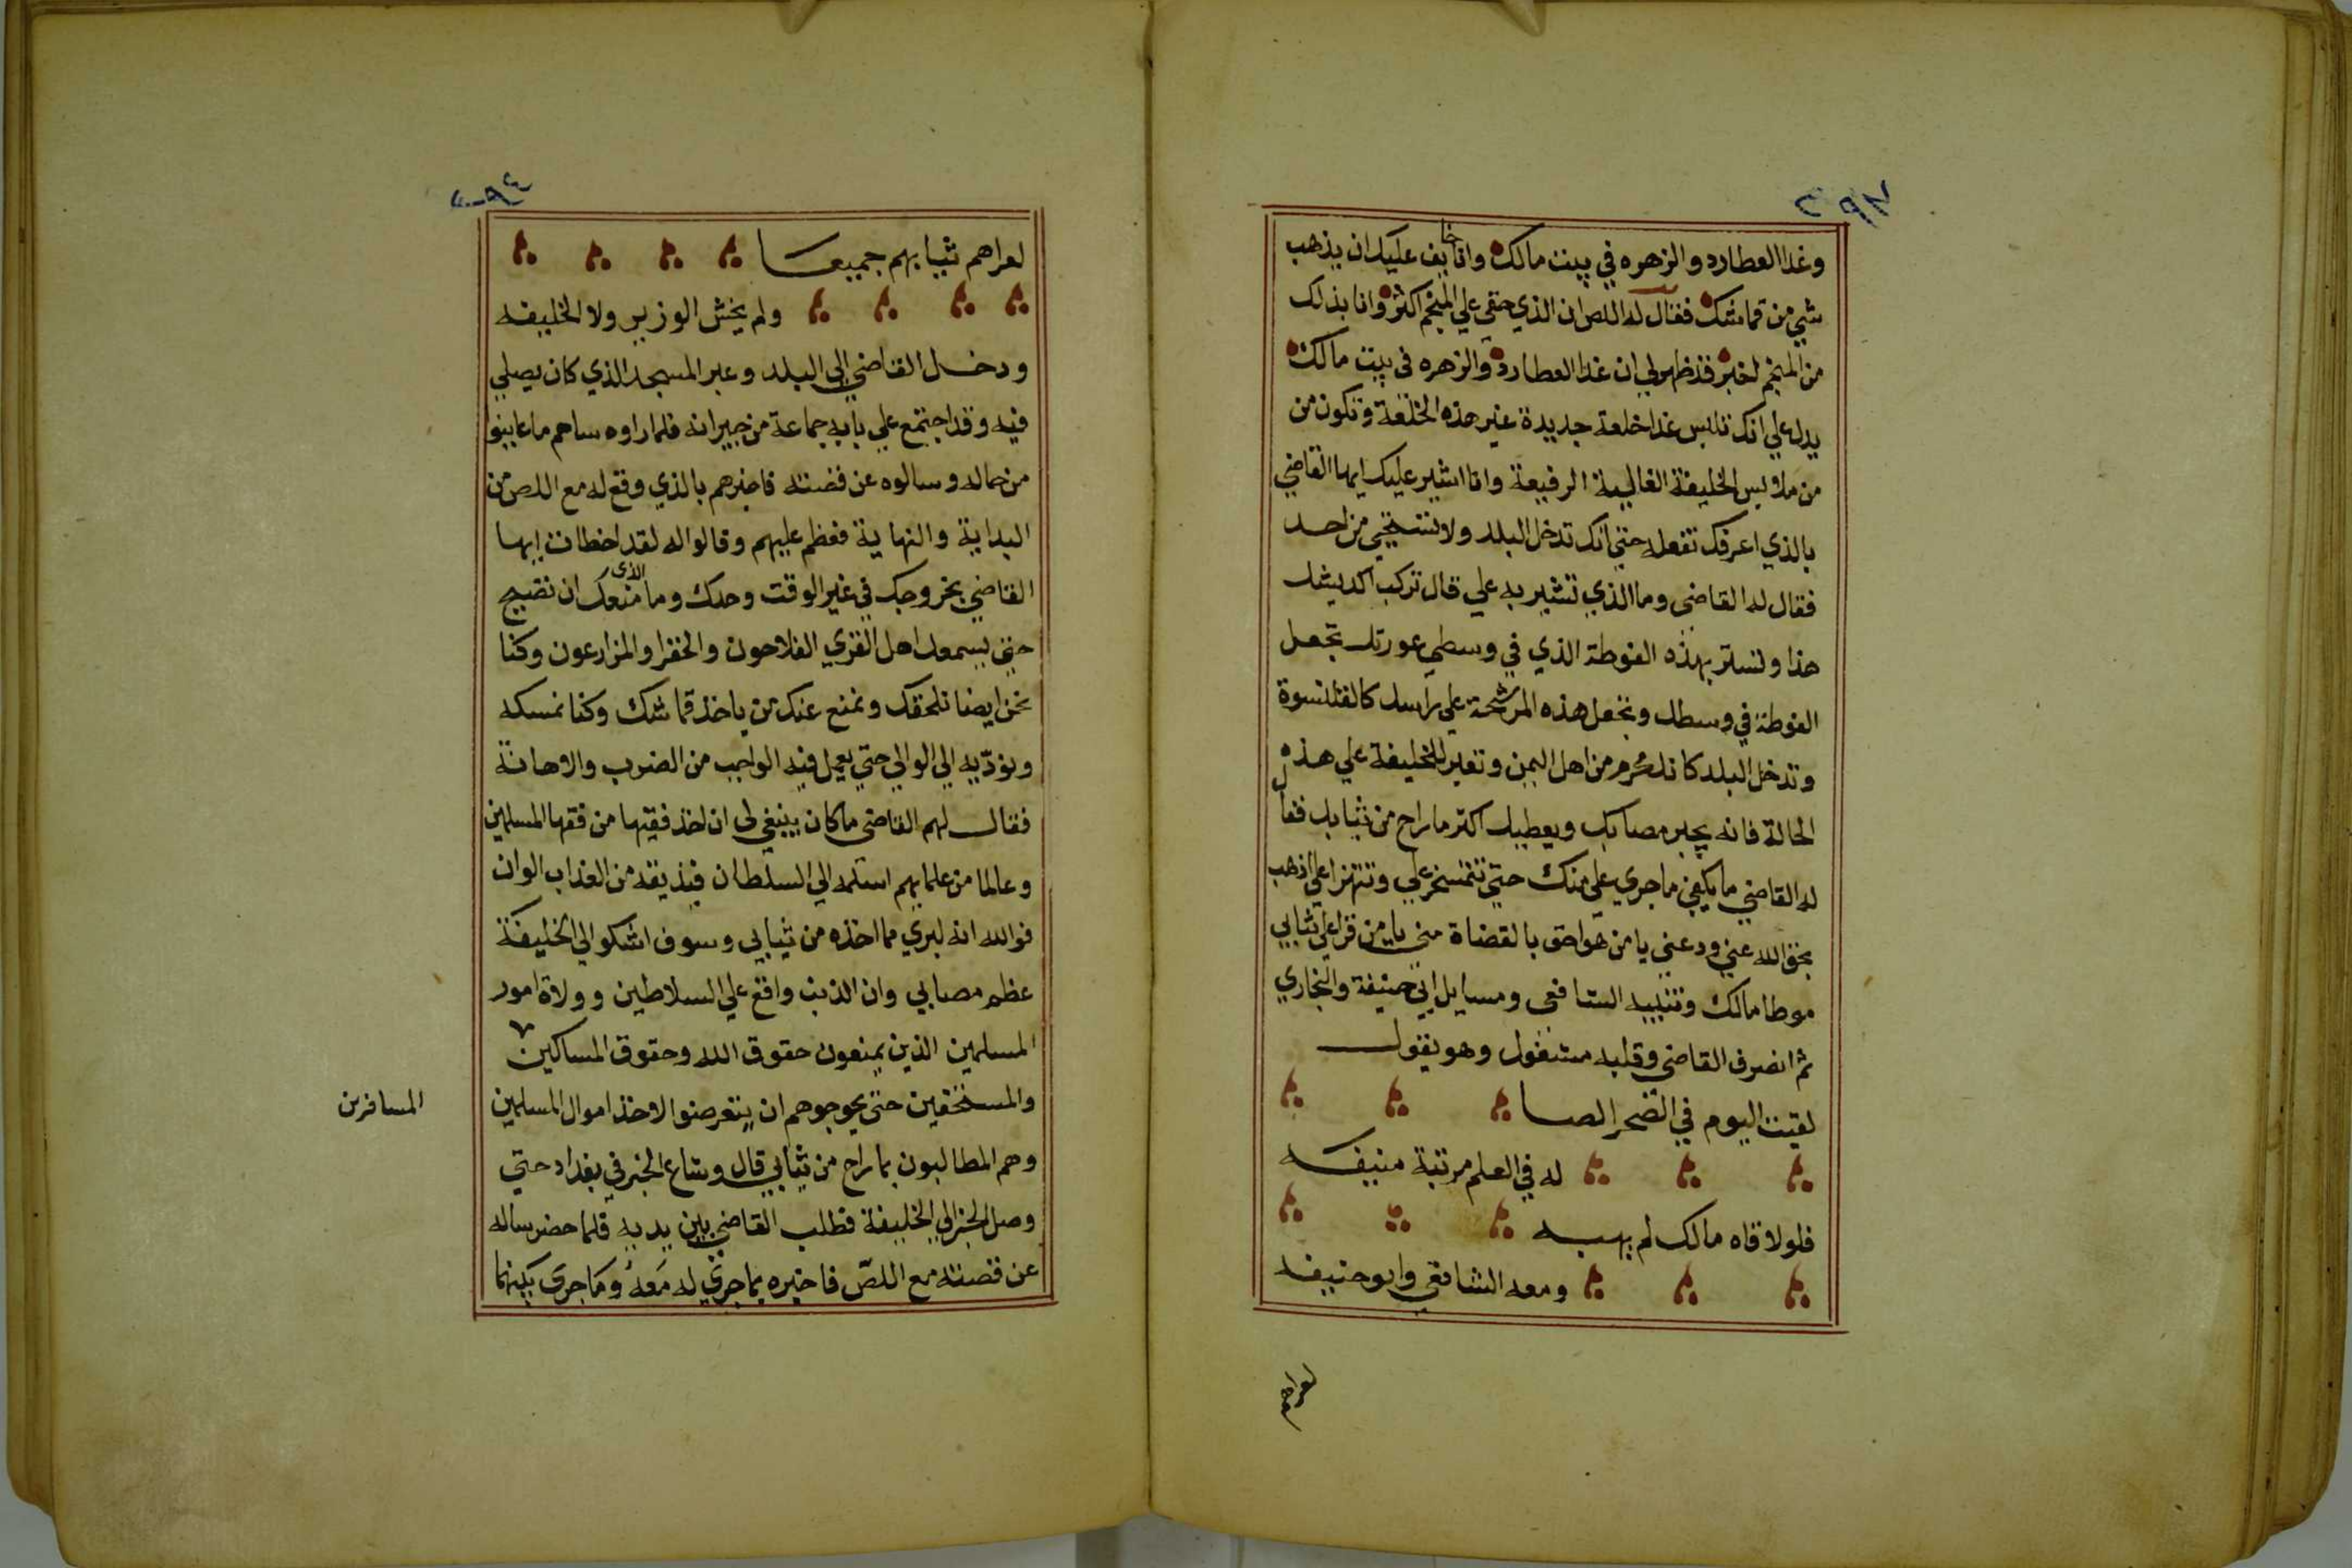 وغدا العطارد والزهره في بيت مالك وانا خايف عليك ان يذهب
شي من قماشك فقال له اللص ان الذي خفي علي المنجم اكثر وانا بذلك
من المنجم لخبر قد ظهر لي ان غدا العطارد والزهره في بيت مالك
يدل علي انك تلبس غدا خلعة جديدة غير هذه الخلعة وتكون من
من ملابس الخليفة الغالية الرفيعة وانا اشير عليك ايها القاضي
بالذي اعرفك تفعله حتي انك تدخل البلد ولا تستحي من احد
فقال له القاضي وما الذي تشير به علي قال تركب اكديشك
هذا وتستتر بهذه الفوطة الذي في وسطي عورتك تجعل
الفوطة في وسطك وتجعل هذه المرشحة علي راسك كالقلنسوة
وتدخل البلد كانك محرم من اهل اليمن وتعبر للخليفة علي هذه
الحالة فانه يجبر مصابك ويعطيك اكتر ما راح من ثيابك فقال
له القاضي ما يكفي ما جري علي منك حتي تتمسخر علي وتتهزا علي اذهب
بحق الله عني ودعني يا من هو احق بالقضاة مني يا من قرا علي ثيابي
موطا مالك وتنبيه الشافعي ومسايل ابي حنيفة والبخاري
ثم انصرف القاضي وقلبه مشغول وهو يقول
لقيت اليوم في الصحر الصا
له في العلم مرتبة منيفه
فلو لاقاه مالك لم يهبه
ومعه الشافعي وابو حنيفه
لعراهم
لعراهم ثيابهم جميعا
ولم يخش الوزير ولا الخليفه
ودخل القاضي الي البلد وعبر المسجد الذي كان يصلي
فيه وقد اجتمع علي بابه جماعة من جيرانه فلما راوه ساهم ما عاينوا
من حاله وسالوه عن قصته فاخبرهم بالذي وقع له مع اللص من
البداية والنهاية فعظم عليهم وقالوا له لقد اخطات ايها
القاضي بخروجك في غير الوقت وحدك وما الذي منعك ان تصيح
حتي يسمعك اهل القري الفلاحون والخفرا والمزارعون وكنا
نحن ايضا نلحقك ونمنع عنك من ياخذ قماشك وكنا نمسكه
ونودّيه الي الوالي حتي يعمل فيه الواجب من الضرب والاهانة
فقال لهم القاضي ما كان ينبغي لي ان اخذ فقيها من فقها المسلمين
وعالما من علمايهم اسلمه الي السلطان فيذيقه من العذاب الوان
فوالله انه لبري مما اخذه من ثيابي وسوف اشكو الي الخليفة
عظم مصابي وان الذنب واقع علي السلاطين وولاة امور
المسلمين الذين يمنعون حقوق الله وحقوق المساكين
والمستحقين حتي يحوجوهم ان يتعرضوا لاخذ اموال المسلمين
المسافرين
وهم المطالبون بما راح من ثيابي قال وشاع الخبر في بغداد حتي
وصل الخبر الي الخليفة فطلب القاضي بين يديه فلما حضر ساله
عن قصته مع اللصّ فاخبره بما جري له معه وما جري بينهما